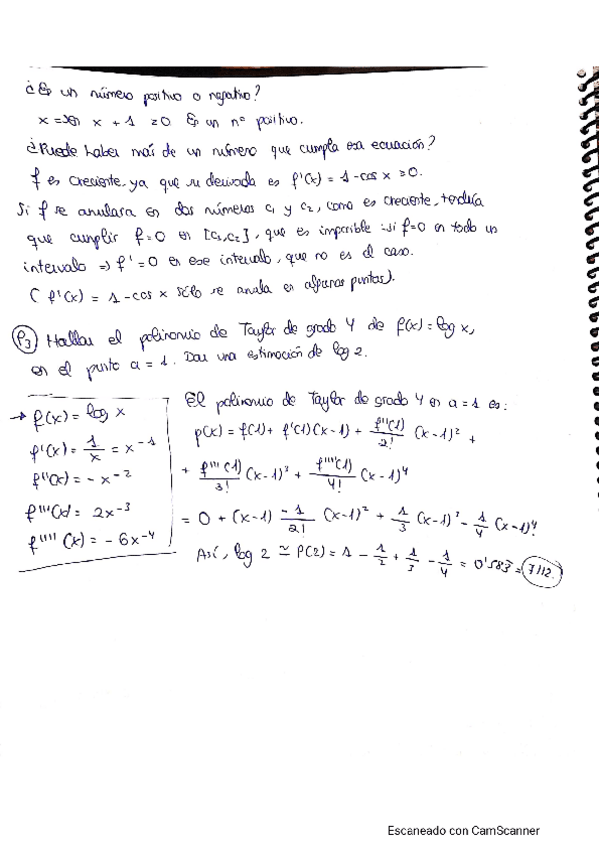 ¿Es un número positivo o negativo?
x = sen x + 1 ≥ 0 Es un nº positivo.
¿Puede haber más de un número que cumpla esa ecuación?
f es creciente, ya que su derivada es f'(x) = 1 - cos x ≥ 0.
Si f se anulara en dos números c₁ y c₂, como es creciente, tendría
que cumplir f = 0 en [c₁, c₂], que es imposible: si f = 0 en todo un
intervalo ⇒ f' = 0 en ese intervalo, que no es el caso.
( f'(x) = 1 - cos x sólo se anula en algunos puntos).
P3 Hallar el polinomio de Taylor de grado 4 de f(x) = log x,
en el punto a = 1. Dar una estimación de log 2.
→ f(x) = log x
f'(x) = 1/x = x^-1
f''(x) = - x^-2
f'''(x) = 2x^-3
f''''(x) = - 6x^-4
El polinomio de Taylor de grado 4 en a = 1 es:
p(x) = f(1) + f'(1)(x-1) + f''(1)/2! (x-1)² +
+ f'''(1)/3! (x-1)³ + f''''(1)/4! (x-1)⁴
= 0 + (x-1) -1/2! (x-1)² + 1/3 (x-1)³ - 1/4 (x-1)⁴.
Así, log 2 ≃ P(2) = 1 - 1/2 + 1/3 - 1/4 = 0'583 = 7/12.
Escaneado con CamScanner